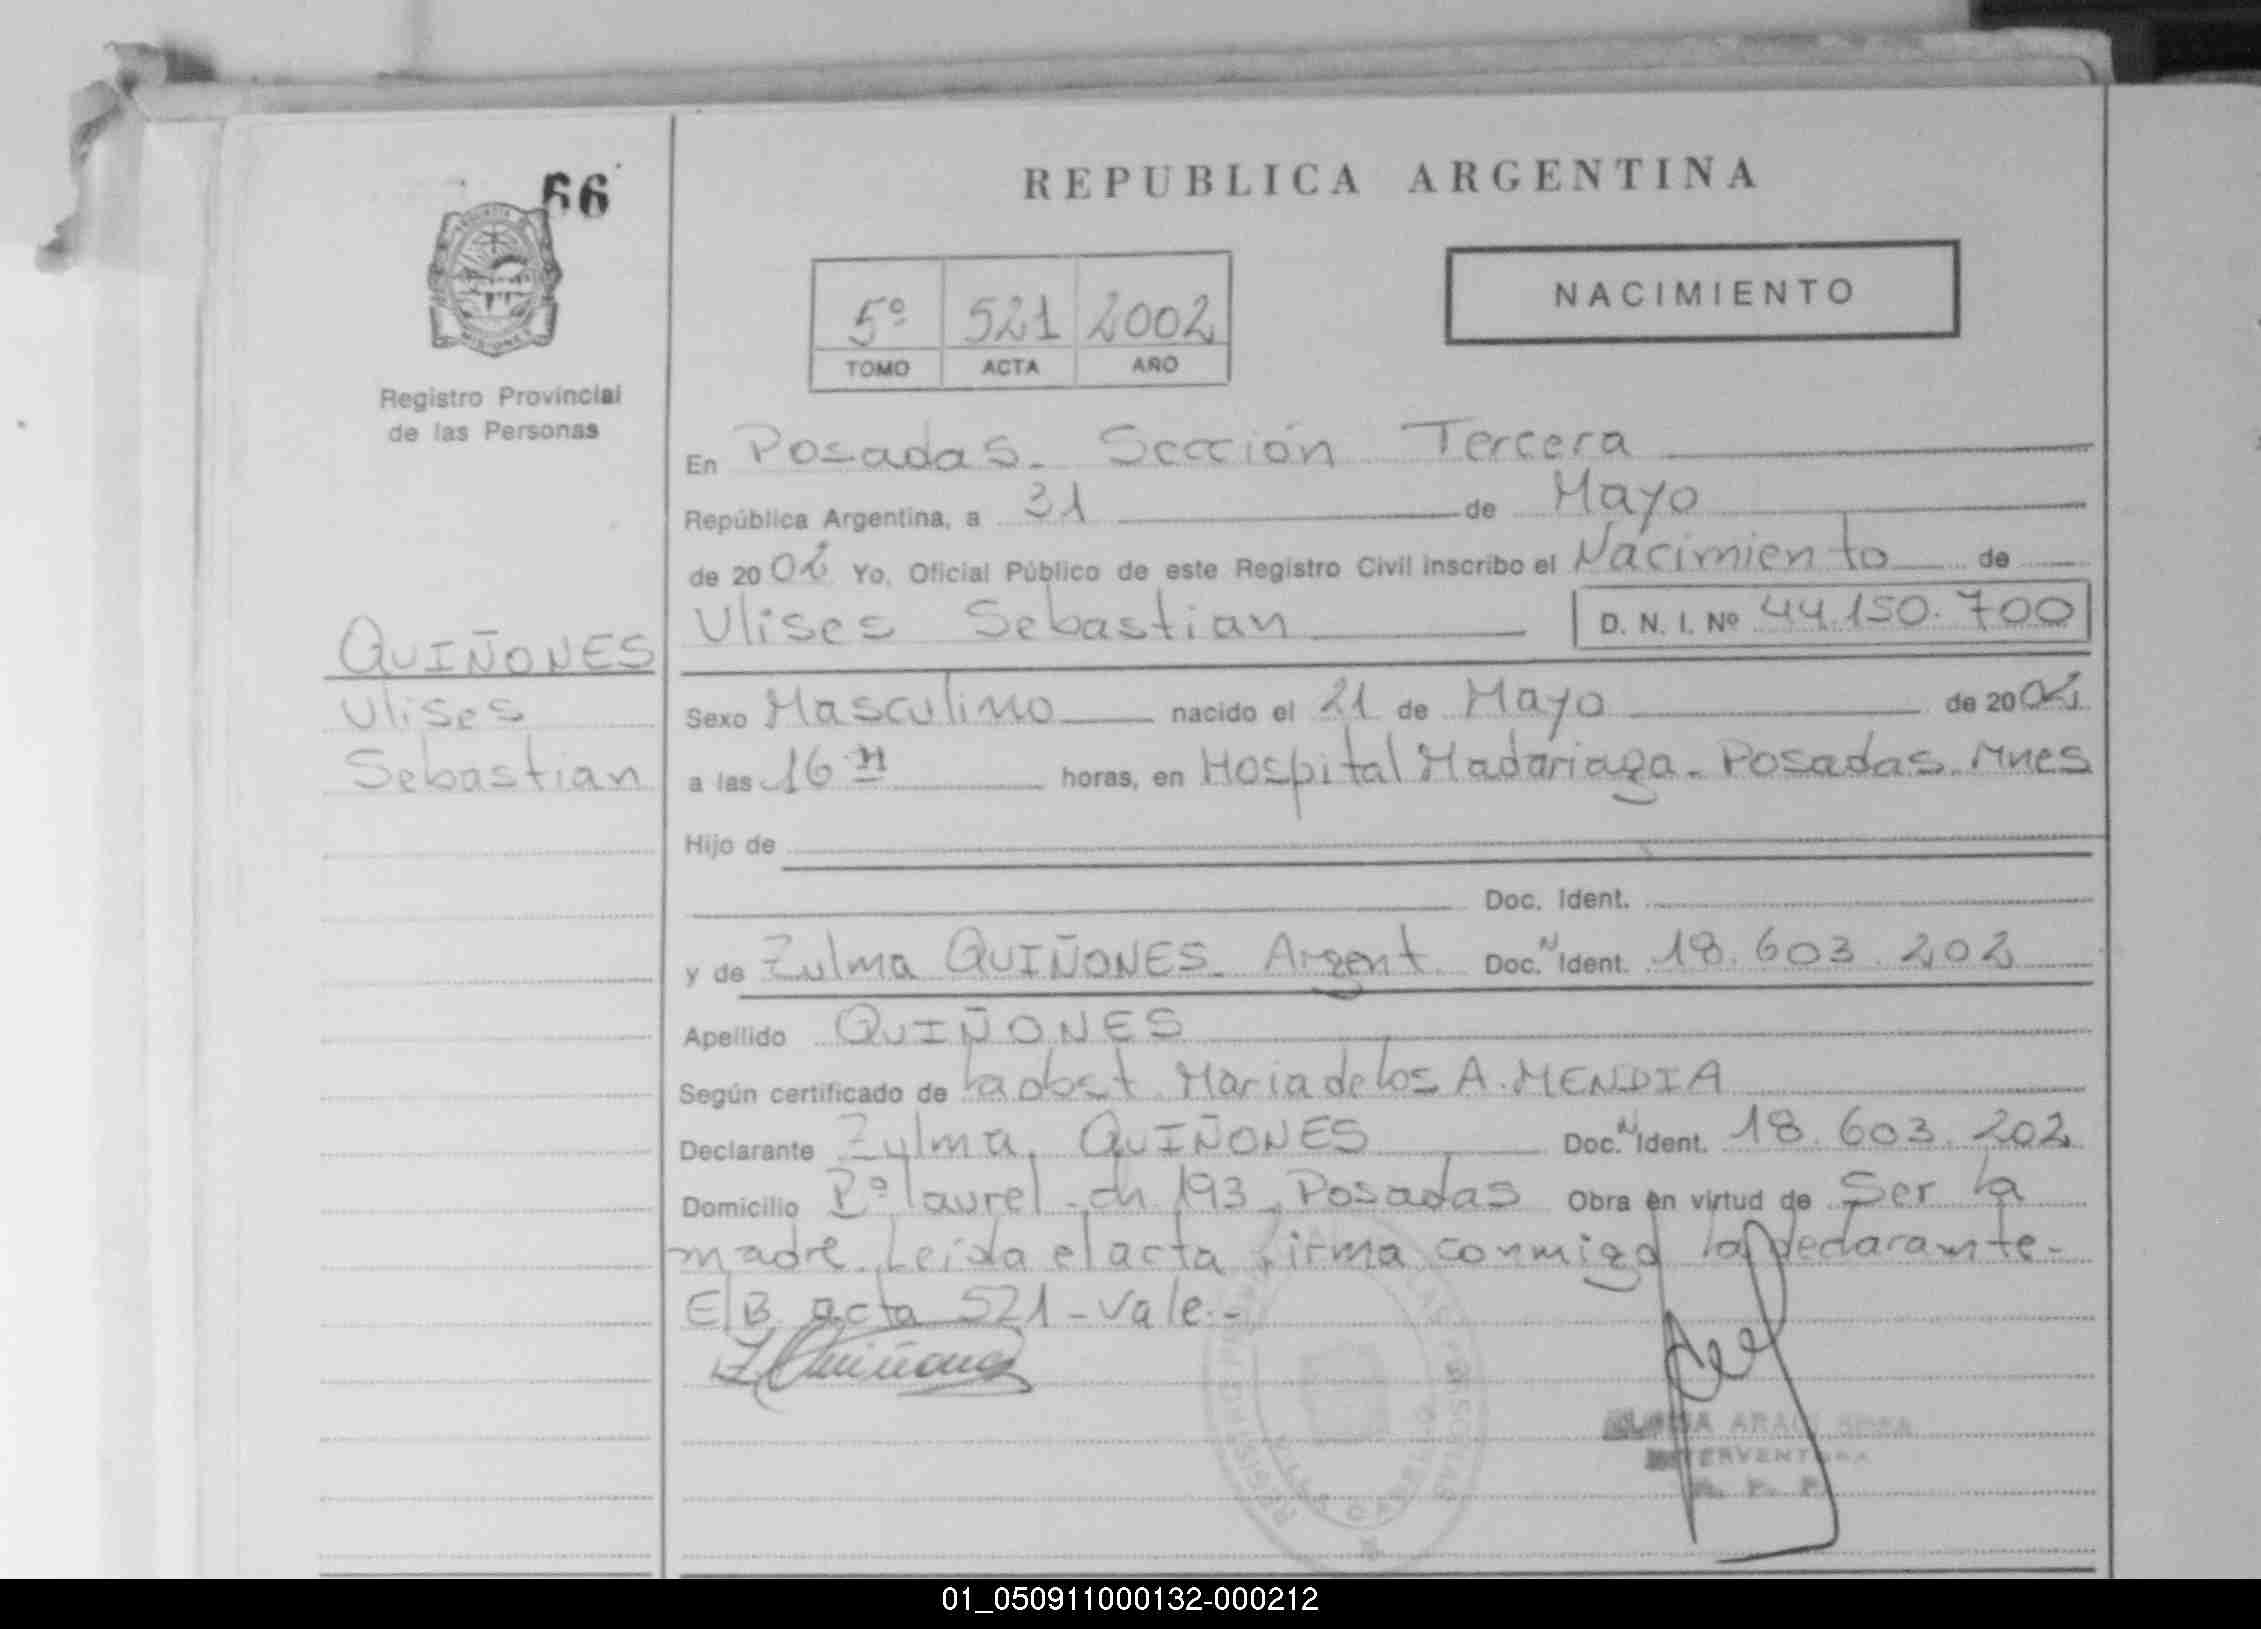 66
REPUBLICA ARGENTINA
5º 521 2002
TOMO ACTA AÑO
NACIMIENTO
MISIONES
Registro Provincial
de las Personas
En Posadas. Sección Tercera
República Argentina, a 31 de Mayo
de 2002 Yo, Oficial Público de este Registro Civil inscribo el Nacimiento de
Ulises Sebastian D. N. I. Nº 44.150.700
QUIÑONES
Ulises
Sebastian
Sexo Masculino nacido el 21 de Mayo de 2002
a las 16 horas, en Hospital Madariaga. Posadas. Mnes
Hijo de
Doc. Ident.
y de Zulma QUIÑONES. Argent. Doc. N Ident. 18.603.202
Apellido QUIÑONES
Según certificado de la obst. Maria de los A. MENDIA
Declarante Zulma QUIÑONES Doc. N Ident. 18.603.202
Domicilio Bº laurel - ch 193 Posadas Obra en virtud de Ser la
madre. Leída el acta firma conmigo la declarante-
E/B acta 521 - vale.-
Z Quiñones
INTERVENTORA
R. P. P.
01_050911000132-000212